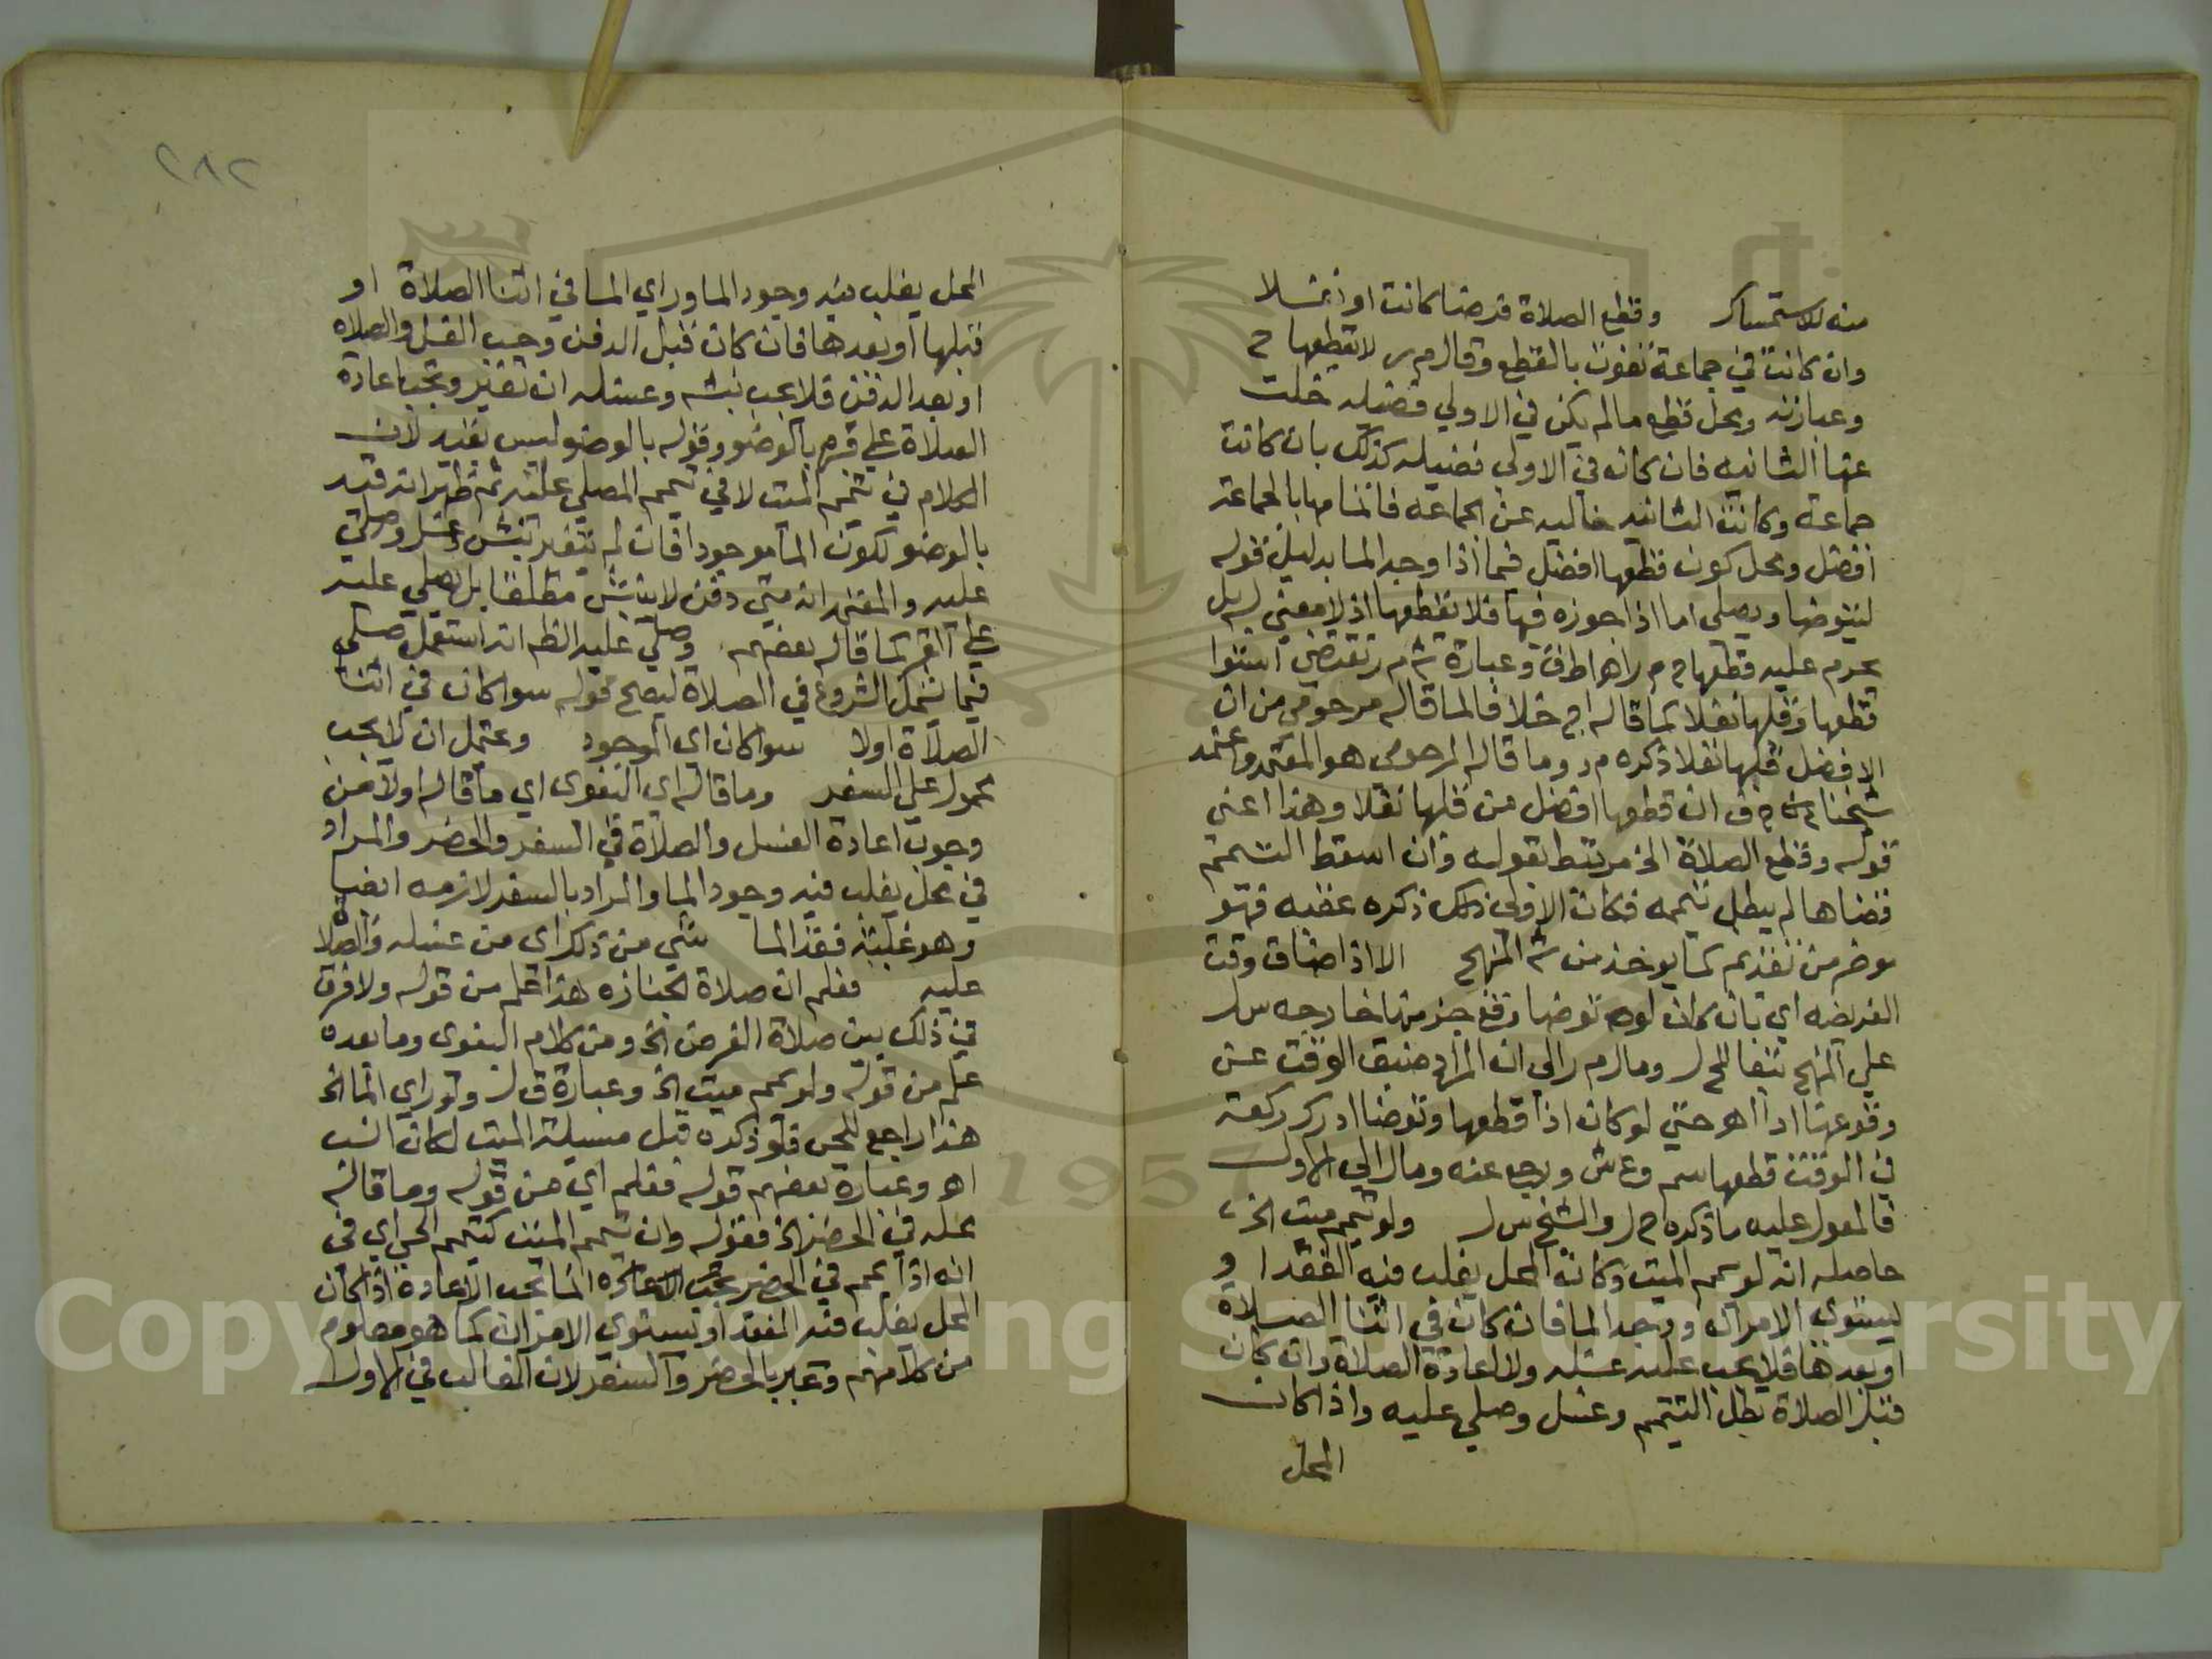 منه للاستمساك وقطع الصلاة فرضا كانت او نفلا
وان كانت في جماعة تفوت بالقطع وقال م ر لا يقطعها ح
وعبارته ومحل قطع ما لم يكن في الاولي فضيله خلت
عنها الثانيه فان كان في الاولي فضيله كذلك بان كانت
جماعة وكانت الثانيه خاليه عن الجماعه فاتمامها بالجماعة
افضل ومحل كون قطعها افضل فيما اذا وجد الما بدليل قوله
ليتوضا ويصلي اما اذا جوزه فيها فلا يقطعها اذ لا معني له بل
يحرم عليه قطعها ح م ر اهـ اطف وعبارة ش م ر تقتضي استوا
قطعها وقلبها نفلا كما قاله ا ج خلافا لما قاله مرحومي من ان
الافضل قلبها نفلا ذكره م د وما قاله المرحومي هو المعتمد واعتمد
شيخنا ح ف ان قطعها افضل من قلبها نفلا وهذا اعني
قوله وقطع الصلاة الخ مرتبط بقوله وان اسقط التيمم
قضاها لم يبطل تيممه فكان الاولي ذلك ذكره عقبه فهو
موخر من تقديم كما يوخذ من ش المنهج الا اذا ضاق وقت
الفريضه اي بان كان لو توضا وقع جزء منها خارجه س ل
علي المنهج تبعا للح ل ومال م ر الي ان المراد ضيق الوقت عن
وقوعها ادا اهـ حتي لو كان اذا قطعها وتوضا ادرك ركعة
في الوقت قطعها سم وع ش ورجع عنه ومال الي الاول
فالمعول عليه ما ذكره ح ل والشيخ س ل ولو تيمم ميت الخ
حاصله انه لو يمم الميت وكان المحل يغلب فيه الفقد او
يستوي الامران ووجد الما فان كان في اثنا الصلاة
او بعدها فلا يجب عليه غسله ولا اعادة الصلاة وان كان
قبل الصلاة بطل التيمم وغسل وصلي عليه واذا كان
المحل
٢٨٢
المحل يغلب فيه وجود الما وراي الما في اثنا الصلاة او
قبلها او بعدها فان كان قبل الدفن وجب الغسل والصلاه
او بعد الدفن فلا يجب نبشه وغسله ان تغير وتجب اعادة
الصلاة علي قبره بالوضو وقوله بالوضو ليس بقيد لان
الكلام في تيمم الميت لا في تيمم المصلي عليه ثم ظهر انه قيد
بالوضو لكون الما موجودا فان لم يتغير نبش وغسل وصلي
عليه والمعتمد انه متي دفن لا ينبش مطلقا بل يصلي عليه
علي القبر كما قاله بعضهم وصلي عليه انظر انه استعمل صلي
فيما يشمل الشروع في الصلاة ليصح قوله سوا كان في اثنا
الصلاة او لا سوا كان اي الموجود ويحتمل ان لا يجب
محمول علي السفر وما قاله اي البغوي اي ما قاله اولا من
وجوب اعادة الغسل والصلاة في السفر والحضر والمراد
في محل يغلب فيه وجود الما والمراد بالسفر لازمه ايضا
وهو غلبة فقد الما شي من ذلك اي من غسله والصلاة
عليه فعلم ان صلاة الجنازه هذا علم من قوله ولا فرق
في ذلك بين صلاة الفرض الخ ومن كلام البغوي وما بعده
علم من قوله ولو يمم ميت الخ وعبارة ق ل ولو راي الما الخ
هذا راجع للحي فلو ذكره قبل مسيلة الميت لكان انسب
اهـ وعبارة بعضهم قوله فعلم اي من قوله وما قاله
محله في الحضر الخ فقوله وان تيمم الميت كتيمم الحي اي في
انه اذا يمم في الحضر يجب الاعاده انما تجب الاعادة اذا كان
المحل يغلب فيه الفقد او يستوي الامران كما هو معلوم
من كلامهم وعبر بالحضر والسفر لان الغالب في الاول